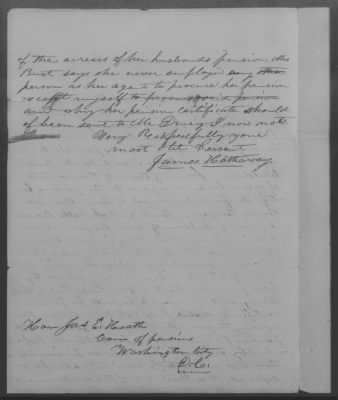 of the arrears of her husbands pension, Mrs
Burt says she never employed any
person as her agent to procure her pension
except myself to procure
and why her pension certificate should
of been sent to Mr I now not
Very Respectfully your
most Obt Servant
James Hathaway
Hon Jas E. Heath
Com of pensions
Washington City
D.C.